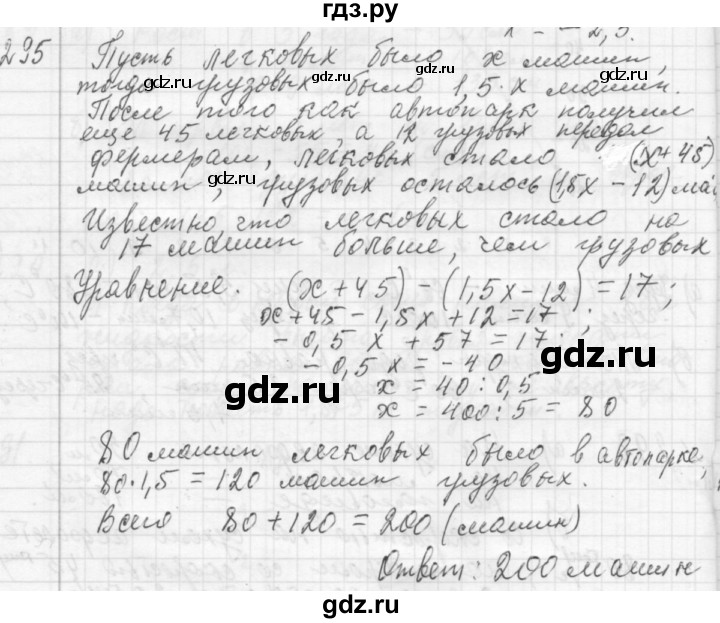 гдз.ру
x = - 2,5.
295
Пусть легковых было x машин,
тогда грузовых было 1,5·x машин.
После того как автопарк получил
еще 45 легковых, а 12 грузовых передал
фермерам, легковых стало (x+45)
машин, грузовых осталось (1,5x - 12) ма
Известно, что легковых стало на
17 машин больше, чем грузовых
Уравнение. (x+45) - (1,5x-12) = 17;
x+45 - 1,5x + 12 = 17;
- 0,5x + 57 = 17;
- 0,5x = - 40
gdz.ru
gdz.ru
x = 40 : 0,5
x = 400 : 5 = 80
80 машин легковых было в автопарке,
80·1,5 = 120 машин грузовых.
Всего 80 + 120 = 200 (машин)
Ответ: 200 машин
gdz.ru
gdz.ru